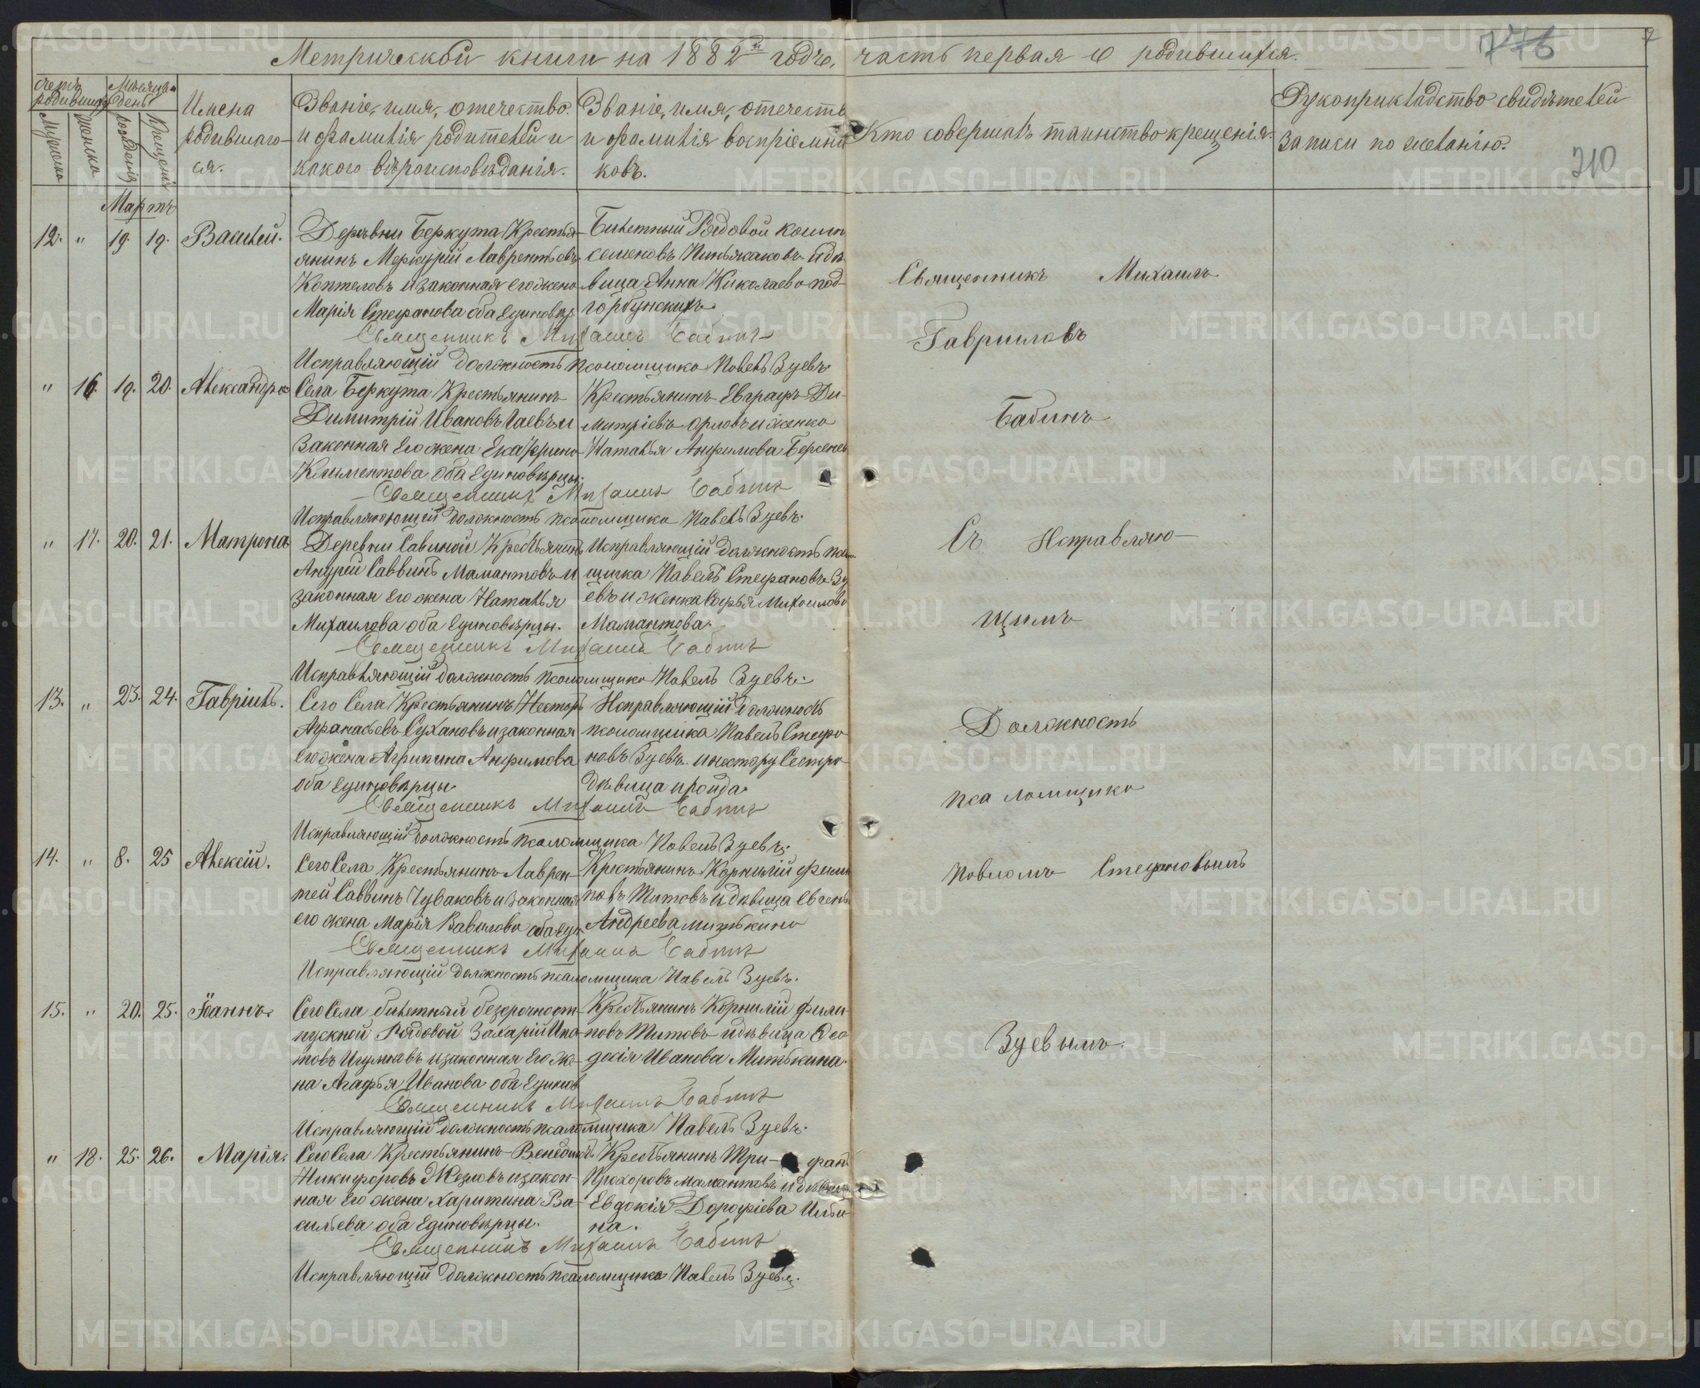 Метрической книги на 1882й годъ, часть первая о родившихся.
776
7
210
Счетъ родившихся
Мужеска
Женска
Мѣсяцъ и день
рожденія
Крещенія
Имена
родившаго-
ся.
Званіе, имя, отечество
и фамилія родителей и
какого вѣроисповѣданія.
Званіе, имя, отечество
и фамилія воспріемни
ковъ.
Кто совершалъ таинство крещенія.
Рукоприкладство свидѣтелей
записи по желанію.
Мартъ
12. " 19. 19. Василий.
Деревни Беркута Крестья-
янинъ Меркурій Лаврентьевъ
Коптеловъ и законная его жена
Марія Стефанова оба Единовѣр.
Билетный Рядовой
семеновъ
вица Анна Николаева под-
горбунскихъ.
Священникъ Михаилъ Бабинъ
Исправляющій должность псаломщика Павелъ Зуевъ
" 16 19. 20. Александра
Села Беркута Крестьянинъ
Димитрій Ивановъ и
Законная его жена Екатерина
Климентова оба Единовѣрцы.
Крестьянинъ Евграфъ Ди-
митріевъ Орловъ и женка
Наталья Анфимова
Священникъ Михаилъ Бабинъ
Исправляющій должность псаломщика Павелъ Зуевъ.
" 17. 20. 21. Матрона
Деревни Савиной Крестьянинъ
Андрей Саввинъ Мамантовъ и
законная его жена Наталья
Михаилова оба Единовѣрцы.
Исправляющій должность псало
мщика Павелъ Стефановъ Зу
евъ и женка Софья Михаилова
Мамантова.
Священникъ Михаилъ Бабинъ
Исправляющій должность псаломщика Павелъ Зуевъ.
13. " 23. 24. Гавріилъ.
Сего Села Крестьянинъ Несторъ
Афанасьевъ Сухановъ и законная
его жена Агрипина Анфимова
оба Единовѣрцы
Исправляющій должность
псаломщика Павелъ Стефа
новъ Зуевъ и нестору Сестра
дѣвица
Священникъ Михаилъ Бабинъ
Исправляющій должность псаломщика Павелъ Зуевъ.
14. " 8. 25 Алексій.
Сего Села Крестьянинъ Лаврен-
тей Саввинъ Чуваковъ и законная
его жена Марія Вавилова оба един
Крестьянинъ Корнилій фили
повъ Титовъ и дѣвица Евгень
Андреева митькина
Священникъ Михаилъ Бабинъ
Исправляющій должность псаломщика Павелъ Зуевъ.
15. " 20. 25. Іоаннъ.
Сего Села билетный безсрочноот-
пускной Рядовой Захарій Ипа
товъ и законная Его же-
на Агафья Иванова оба Единов
Крестьянинъ Корнилій фили-
повъ Титовъ и дѣвица Фео
досія Иванова Митькина.
Священникъ Михаилъ Бабинъ
Исправляющій должность псаломщика Павелъ Зуевъ.
" 18. 25. 26. Марія.
Сего Села Крестьянинъ Венедиктъ
Никифоровъ и закон-
ная его жена Харитина Ва-
сильева оба Единовѣрцы.
Крестьянинъ Три- фан
Прохоровъ Мамантовъ и дѣвица
Евдокія Дорофіева Ильи
на.
Священникъ Михаилъ Бабинъ
Исправляющій должность псаломщика Павелъ Зуевъ.
Священникъ Михаилъ
Гавриловъ
Бабинъ
Съ Исправляю-
щимъ
Должность
псаломщика
Павломъ Стефановымъ
Зуевымъ.
METRIKI.GASO-URAL.RU